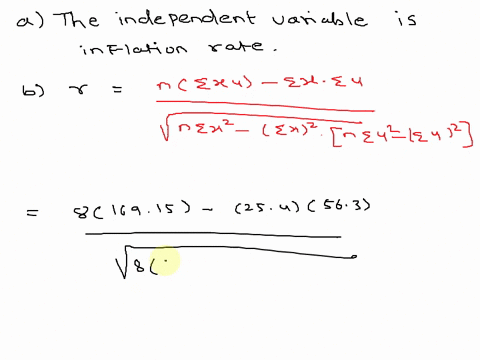 a) The independent variable is
inflation rate.
b) r = n(Σxy) - Σx·Σy / √nΣx² - (Σx)²·[nΣy²-(Σy)²]
= 8(169.15) - (25.4)(56.3) / √8(